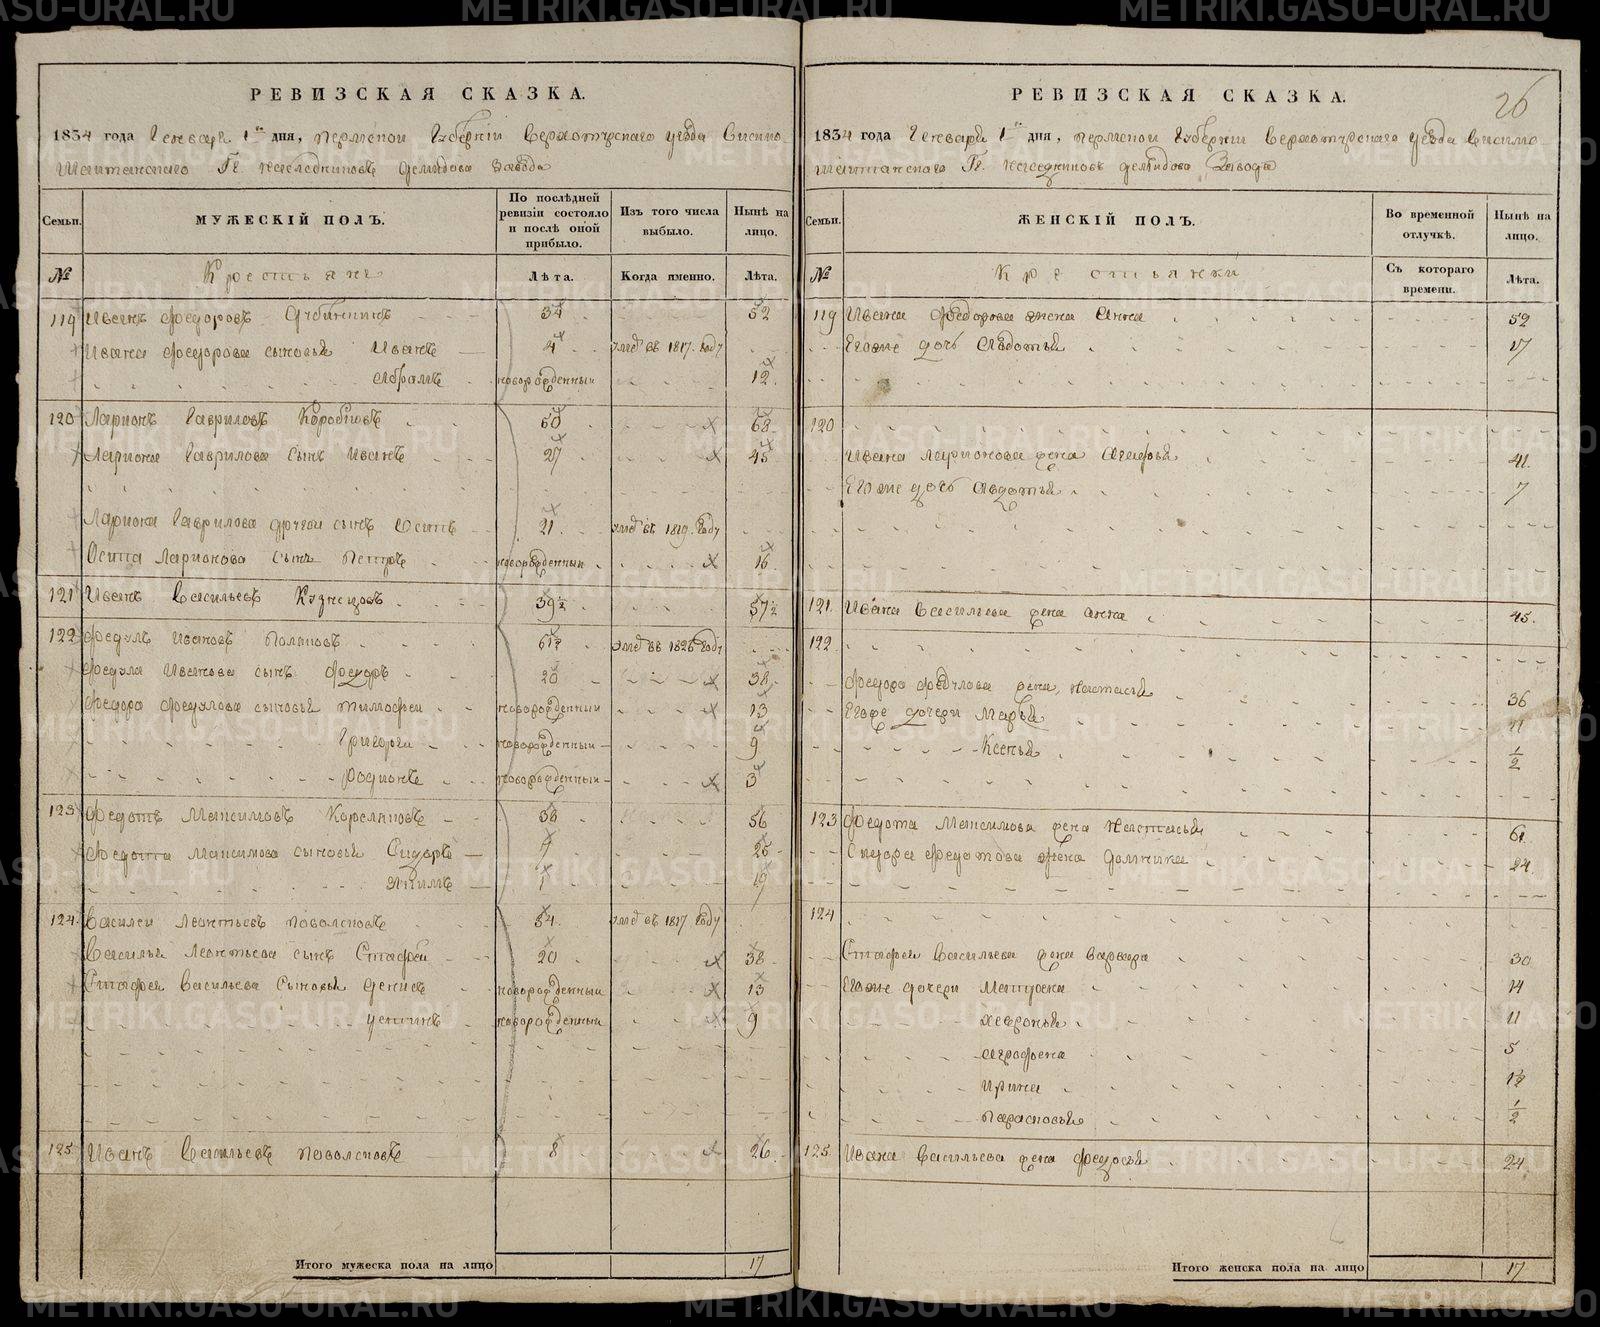 РЕВИЗСКАЯ СКАЗКА.
1834 года Генваря 1го дня, Пермской Губерніи Верхотурскаго уѣзда Висимо-
Шайтанскаго Гг. наследниковъ Демидова завода
Семьи.
МУЖЕСКІЙ ПОЛЪ.
По послѣдней ревизіи состояло и послѣ оной прибыло.
Изъ того числа выбыло.
Нынѣ на лицо.
№
Крестьяне
Лѣта.
Когда именно.
Лѣта.
119 Иванъ Федоровъ 34 52
Ивана Федорова сыновья Иванъ 4 въ 1817. году
Абрамъ новорожденный 12
120 Ларионъ Гавриловъ 50 68
Лариона Гаврилова сынъ Иванъ 27 45
Лариона Гаврилова другой сынъ Осипъ 21 въ 1819. году
Осипа Ларионова сынъ Петръ новорожденный 16
121 Иванъ Васильевъ Кузнецовъ 39½ 57½
122 Федулъ Ивановъ Поляковъ въ 1826 году
Федула Иванова сынъ Федоръ 20 38
Федора Федулова сыновья Тимофей новорожденный 13
Григорей новорожденный 9
Родионъ новорожденный 3
123 Федотъ Максимовъ 38 56
Федота Максимова сыновья Сидоръ 7 25
Якимъ 1 19
124. Василей Леонтьевъ 54. въ 1817 году
Василья Леонтьева сынъ 20 38
Васильева сыновья Денисъ новорожденный 13
новорожденный 9
125. Иванъ Васильевъ 8 26
Итого мужеска пола на лицо 17
26
РЕВИЗСКАЯ СКАЗКА.
1834 года Генваря 1го дня, Пермской Губерніи Верхотурскаго уѣзда Висимо-
Шайтанскаго Гг. наследниковъ Демидова завода
Семьи.
ЖЕНСКІЙ ПОЛЪ.
Во временной отлучкѣ.
Нынѣ на лицо.
№
Крестьянки
Съ котораго времени.
Лѣта.
119 Ивана Федорова жена Анна 52
Егоже дочь Авдотья 17
120
Ивана Ларионова жена Агафья 41
Егоже дочь Авдотья 7
121. Ивана Васильева жена Анна 45.
122
Федора Федулова жена Настасья 36
Егоже дочери Марья 11
Ксенья ½
123 Федота Максимова жена Настасья 61
Сидора Федотова жена 24
124
Васильева жена Варвара 30
Егоже дочери Матрена 14
Хеврония 11
Аграфена 5
Ирина 1½
Парасковья ½
125. Ивана Васильева жена Федосья 24
Итого женска пола на лицо 17
METRIKI.GASO-URAL.RU